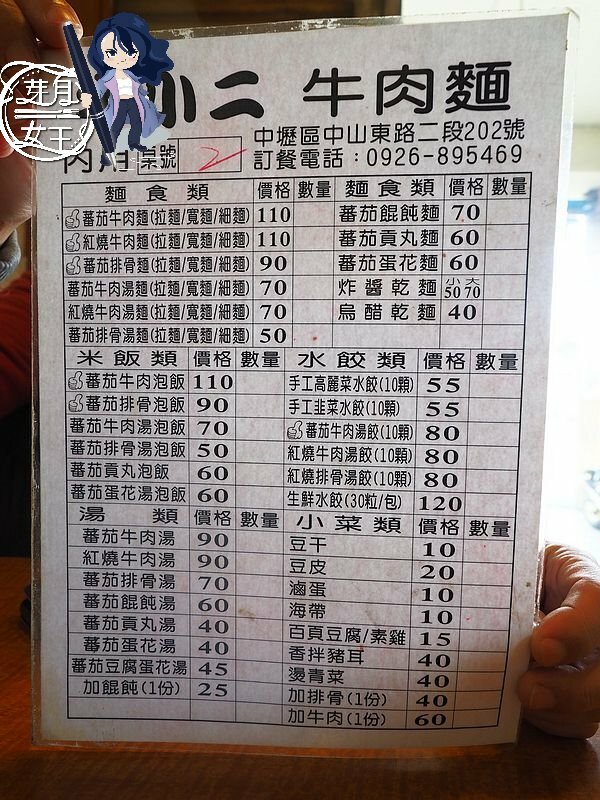 芽月
女王
小二 牛肉麵
中壢區中山東路二段202號
內用 桌號 2 訂餐電話：0926-895469
麵食類 價格 數量
蕃茄牛肉麵(拉麵/寬麵/細麵) 110
紅燒牛肉麵(拉麵/寬麵/細麵) 110
蕃茄排骨麵(拉麵/寬麵/細麵) 90
蕃茄牛肉湯麵(拉麵/寬麵/細麵) 70
紅燒牛肉湯麵(拉麵/寬麵/細麵) 70
蕃茄排骨湯麵(拉麵/寬麵/細麵) 50
麵食類 價格 數量
蕃茄餛飩麵 70
蕃茄貢丸麵 60
蕃茄蛋花麵 60
炸醬乾麵 小50 大70
烏醋乾麵 40
米飯類 價格 數量
蕃茄牛肉泡飯 110
蕃茄排骨泡飯 90
蕃茄牛肉湯泡飯 70
蕃茄排骨湯泡飯 50
蕃茄貢丸泡飯 60
蕃茄蛋花湯泡飯 60
水餃類 價格 數量
手工高麗菜水餃(10顆) 55
手工韭菜水餃(10顆) 55
蕃茄牛肉湯餃(10顆) 80
紅燒牛肉湯餃(10顆) 80
紅燒排骨湯餃(10顆) 80
生鮮水餃(30粒/包) 120
湯類 價格 數量
蕃茄牛肉湯 90
紅燒牛肉湯 90
蕃茄排骨湯 70
蕃茄餛飩湯 60
蕃茄貢丸湯 40
蕃茄蛋花湯 40
蕃茄豆腐蛋花湯 45
加餛飩(1份) 25
小菜類 價格 數量
豆干 10
豆皮 20
滷蛋 10
海帶 10
百頁豆腐/素雞 15
香拌豬耳 40
燙青菜 40
加排骨(1份) 40
加牛肉(1份) 60